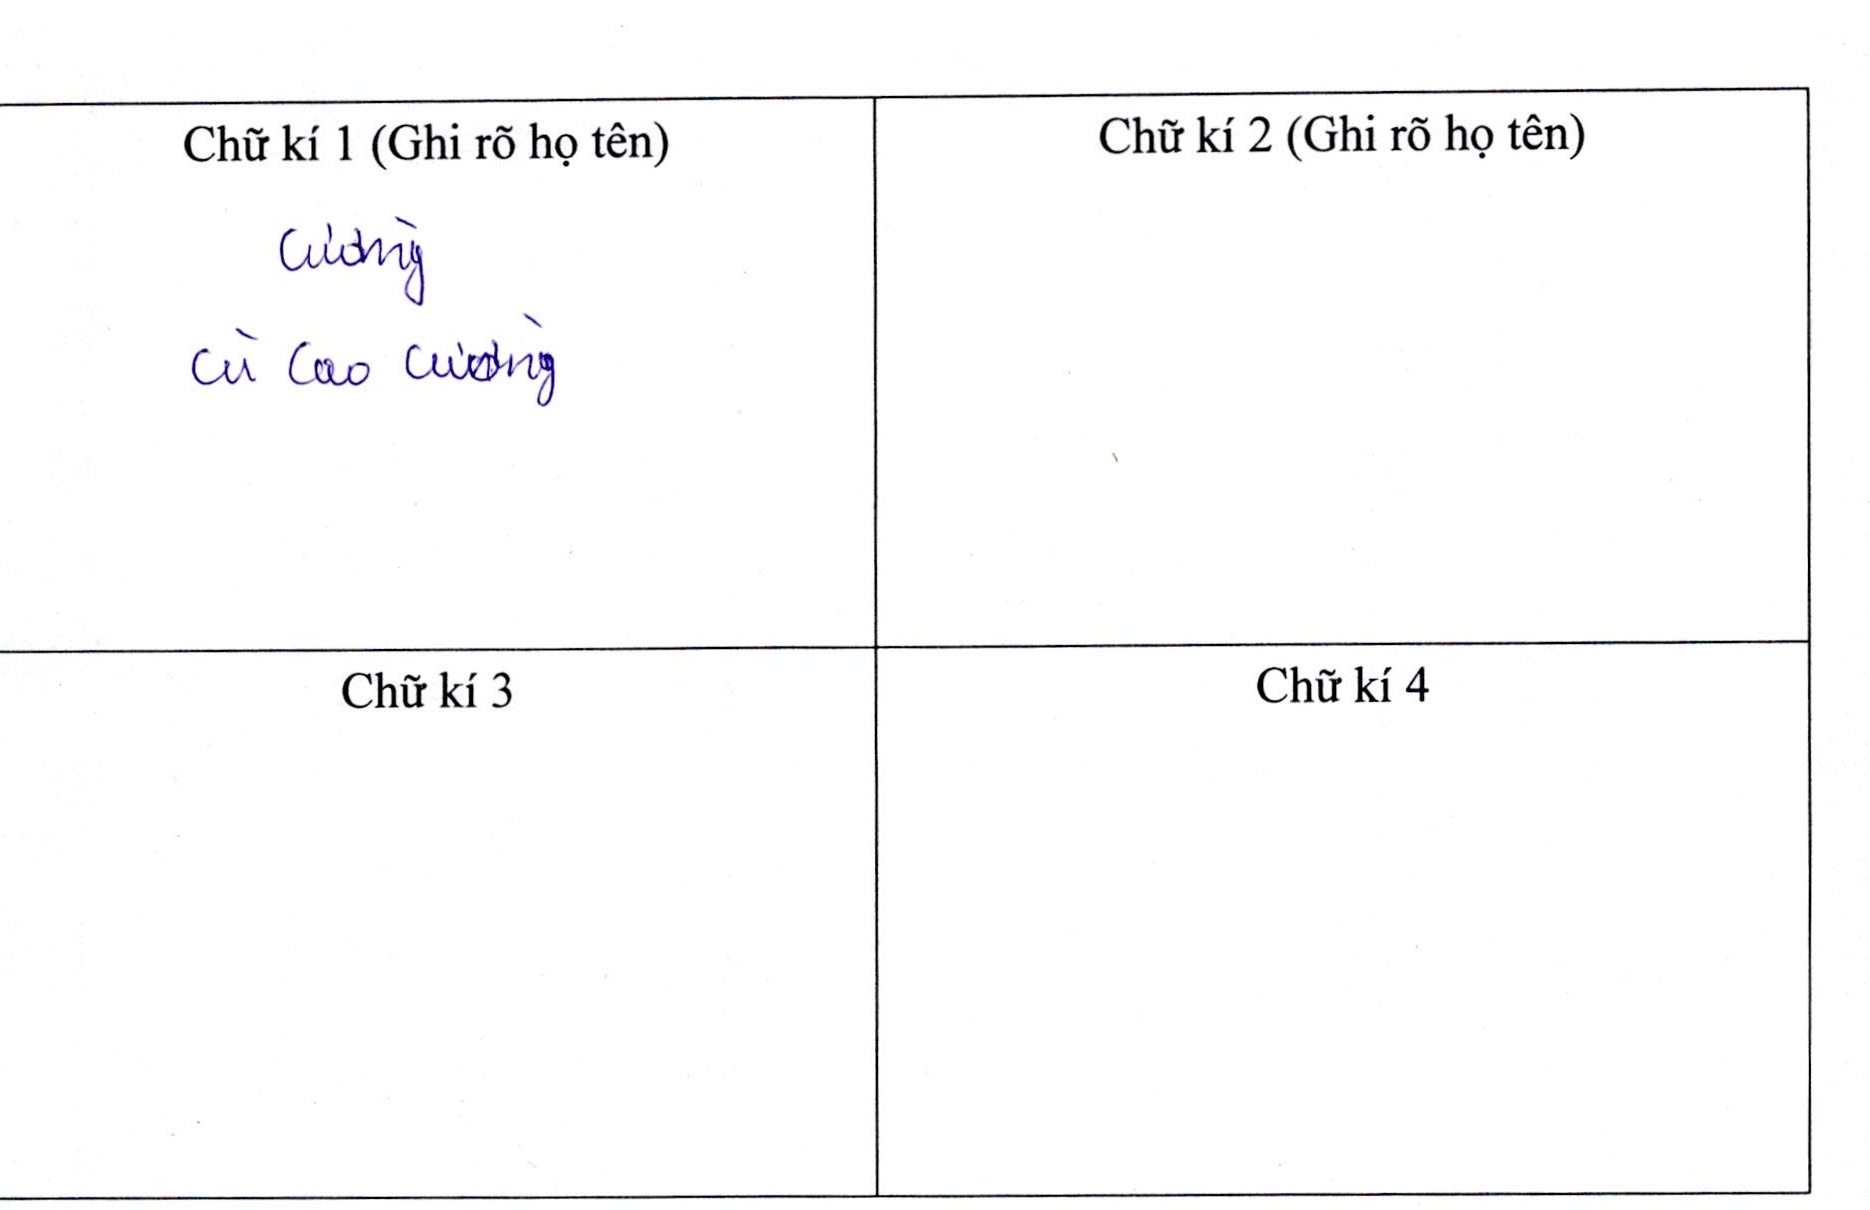 Chữ kí 1 (Ghi rõ họ tên)
Cường
Cù Cao Cường
Chữ kí 2 (Ghi rõ họ tên)
Chữ kí 3
Chữ kí 4